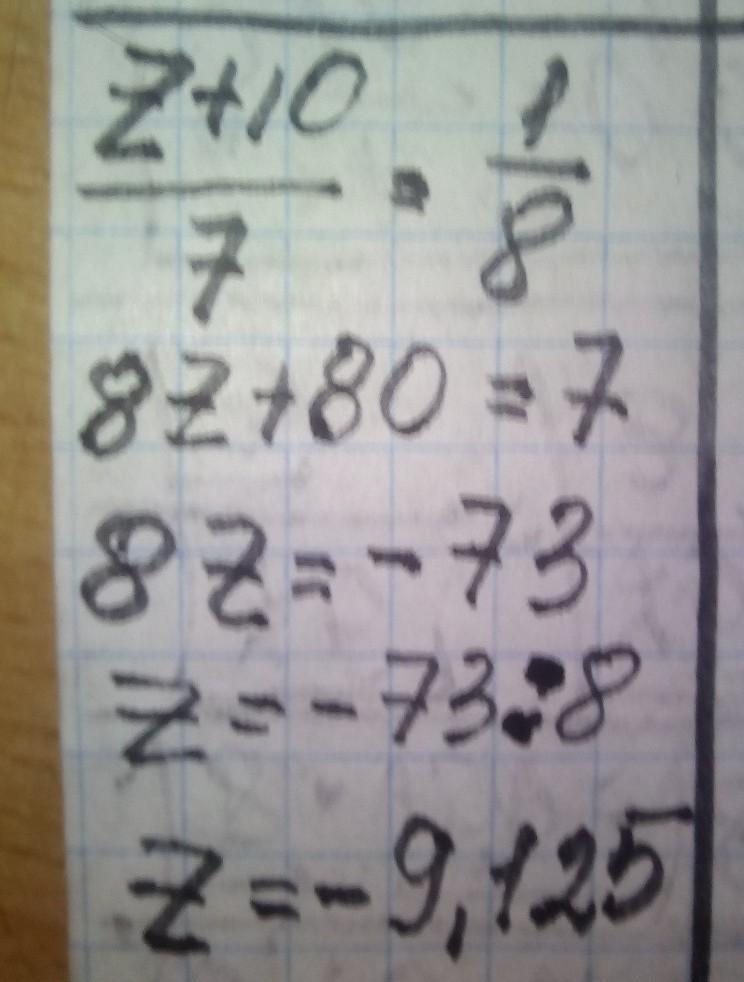 z+10/7 = 1/8
8z+80=7
8z=-73
z=-73:8
z=-9,125